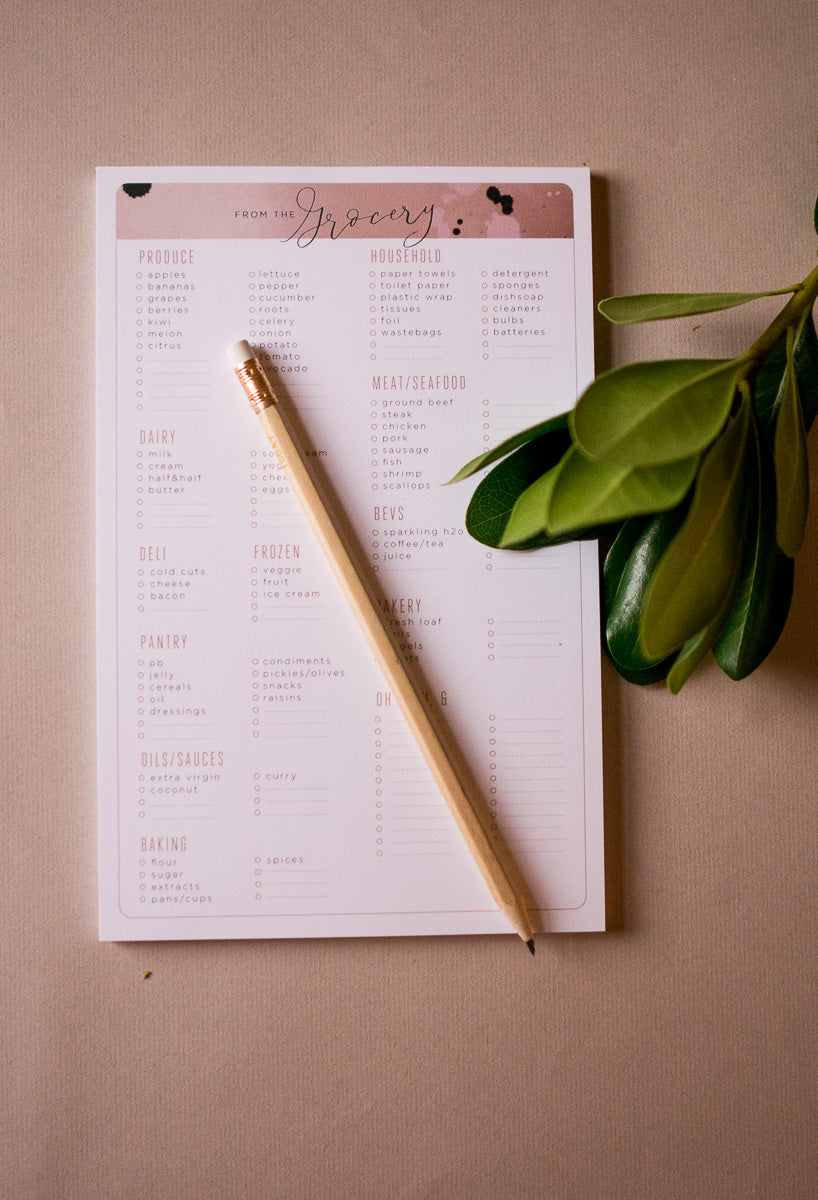 FROM THE Grocery
PRODUCE
apples
bananas
grapes
berries
kiwi
melon
citrus
lettuce
pepper
cucumber
roots
celery
onion
potato
tomato
vocado
DAIRY
milk
cream
half&half
butter
eggs
DELI
cold cuts
cheese
bacon
FROZEN
veggie
fruit
ice cream
PANTRY
pb
jelly
cereals
oil
dressings
condiments
pickles/olives
snacks
raisins
OILS/SAUCES
extra virgin
coconut
curry
BAKING
flour
sugar
extracts
pans/cups
spices
HOUSEHOLD
paper towels
toilet paper
plastic wrap
tissues
foil
wastebags
detergent
sponges
dishsoap
cleaners
bulbs
batteries
MEAT/SEAFOOD
ground beef
steak
chicken
pork
sausage
fish
shrimp
scallops
BEVS
sparkling h2o
coffee/tea
juice
AKERY
resh loaf
OH
&